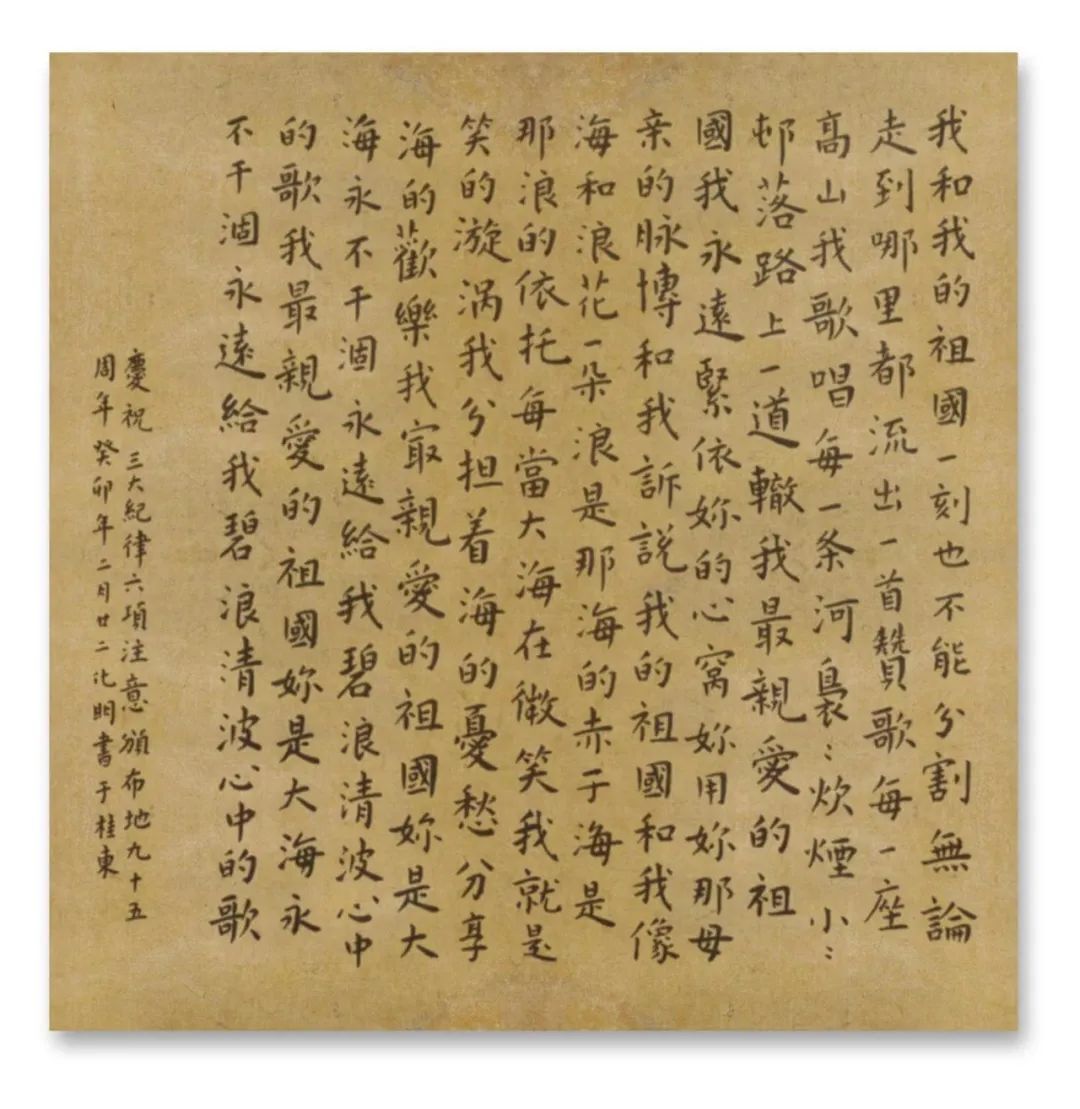 我和我的祖國一刻也不能分割無論
走到哪里都流出一首贊歌每一座
高山我歌唱每一条河裊〻炊煙小〻
邨落路上一道轍我最親愛的祖
國我永遠緊依妳的心窩妳用妳那母
亲的脉博和我訴説我的祖國和我像
海和浪花一朵浪是那海的赤子海是
那浪的依托每當大海在微笑我就是
笑的漩涡我分担着海的憂愁分享
海的歡樂我㝡親愛的祖國妳是大
海永不干涸永遠給我碧浪清波心中
的歌我最親愛的祖國妳是大海永
不干涸永遠給我碧浪清波心中的歌
慶祝三大紀律六項注意頒布地九十五
周年癸卯年二月廿二化明書于桂東